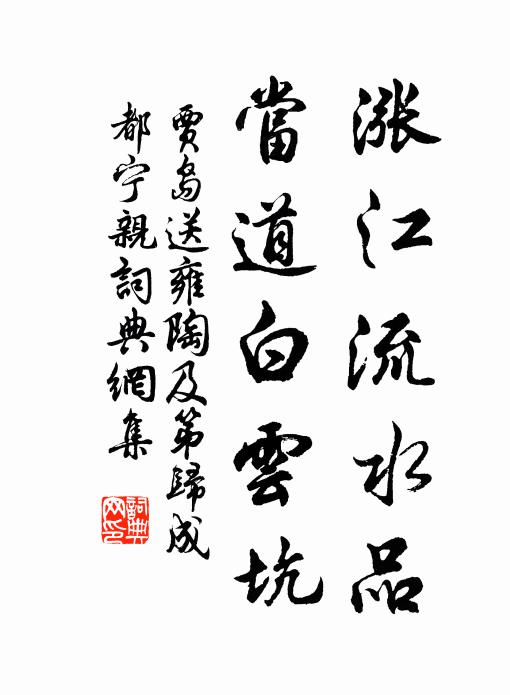 漲江流水品
當道白雲坑
賈島送雍陶及第歸成
都宁親詞典網集
詞典
网印